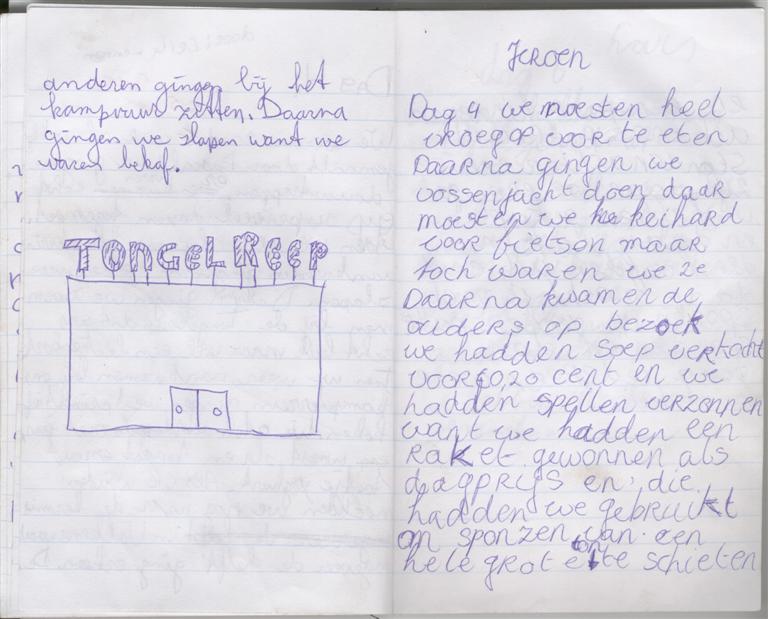 anderen gingen bij het
kampvuur zetten. Daarna
gingen we slapen want we
waren bekaf.
TONGELREEP
JEROEN
Dag 4 we moesten heel
vroeg op voor te eten
Daarna gingen we
vossenjacht doen daar
moesten we keihard
voor fietson maar
toch waren we 2e
Daarna kwamen de
ouders op bezoek
we hadden soep verkocht
voor €0,20 cent en we
hadden spellen verzonnen
want we hadden een
raket gewonnen als
dagprijs en die
hadden we gebruikt
om sponzen van een
hele grote te schieten